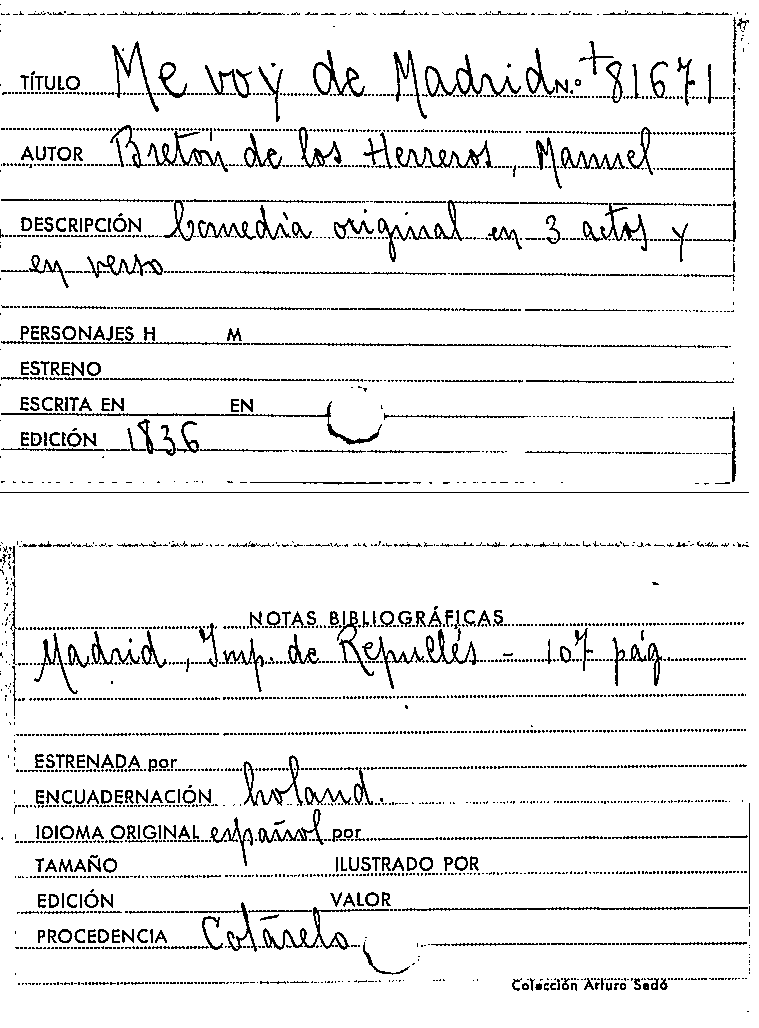 TÍTULO Me voy de Madrid N.º + 81671
AUTOR Bretón de los Herreros, Manuel
DESCRIPCIÓN Comedia original en 3 actos y
en verso
PERSONAJES H M
ESTRENO
ESCRITA EN EN
EDICIÓN 1836
NOTAS BIBLIOGRÁFICAS
Madrid, Imp. de Repullés - 107 pág
ESTRENADA por
ENCUADERNACIÓN holand.
IDIOMA ORIGINAL español por
TAMAÑO ILUSTRADO POR
EDICIÓN VALOR
PROCEDENCIA Cotarelo
Colección Arturo Sedó